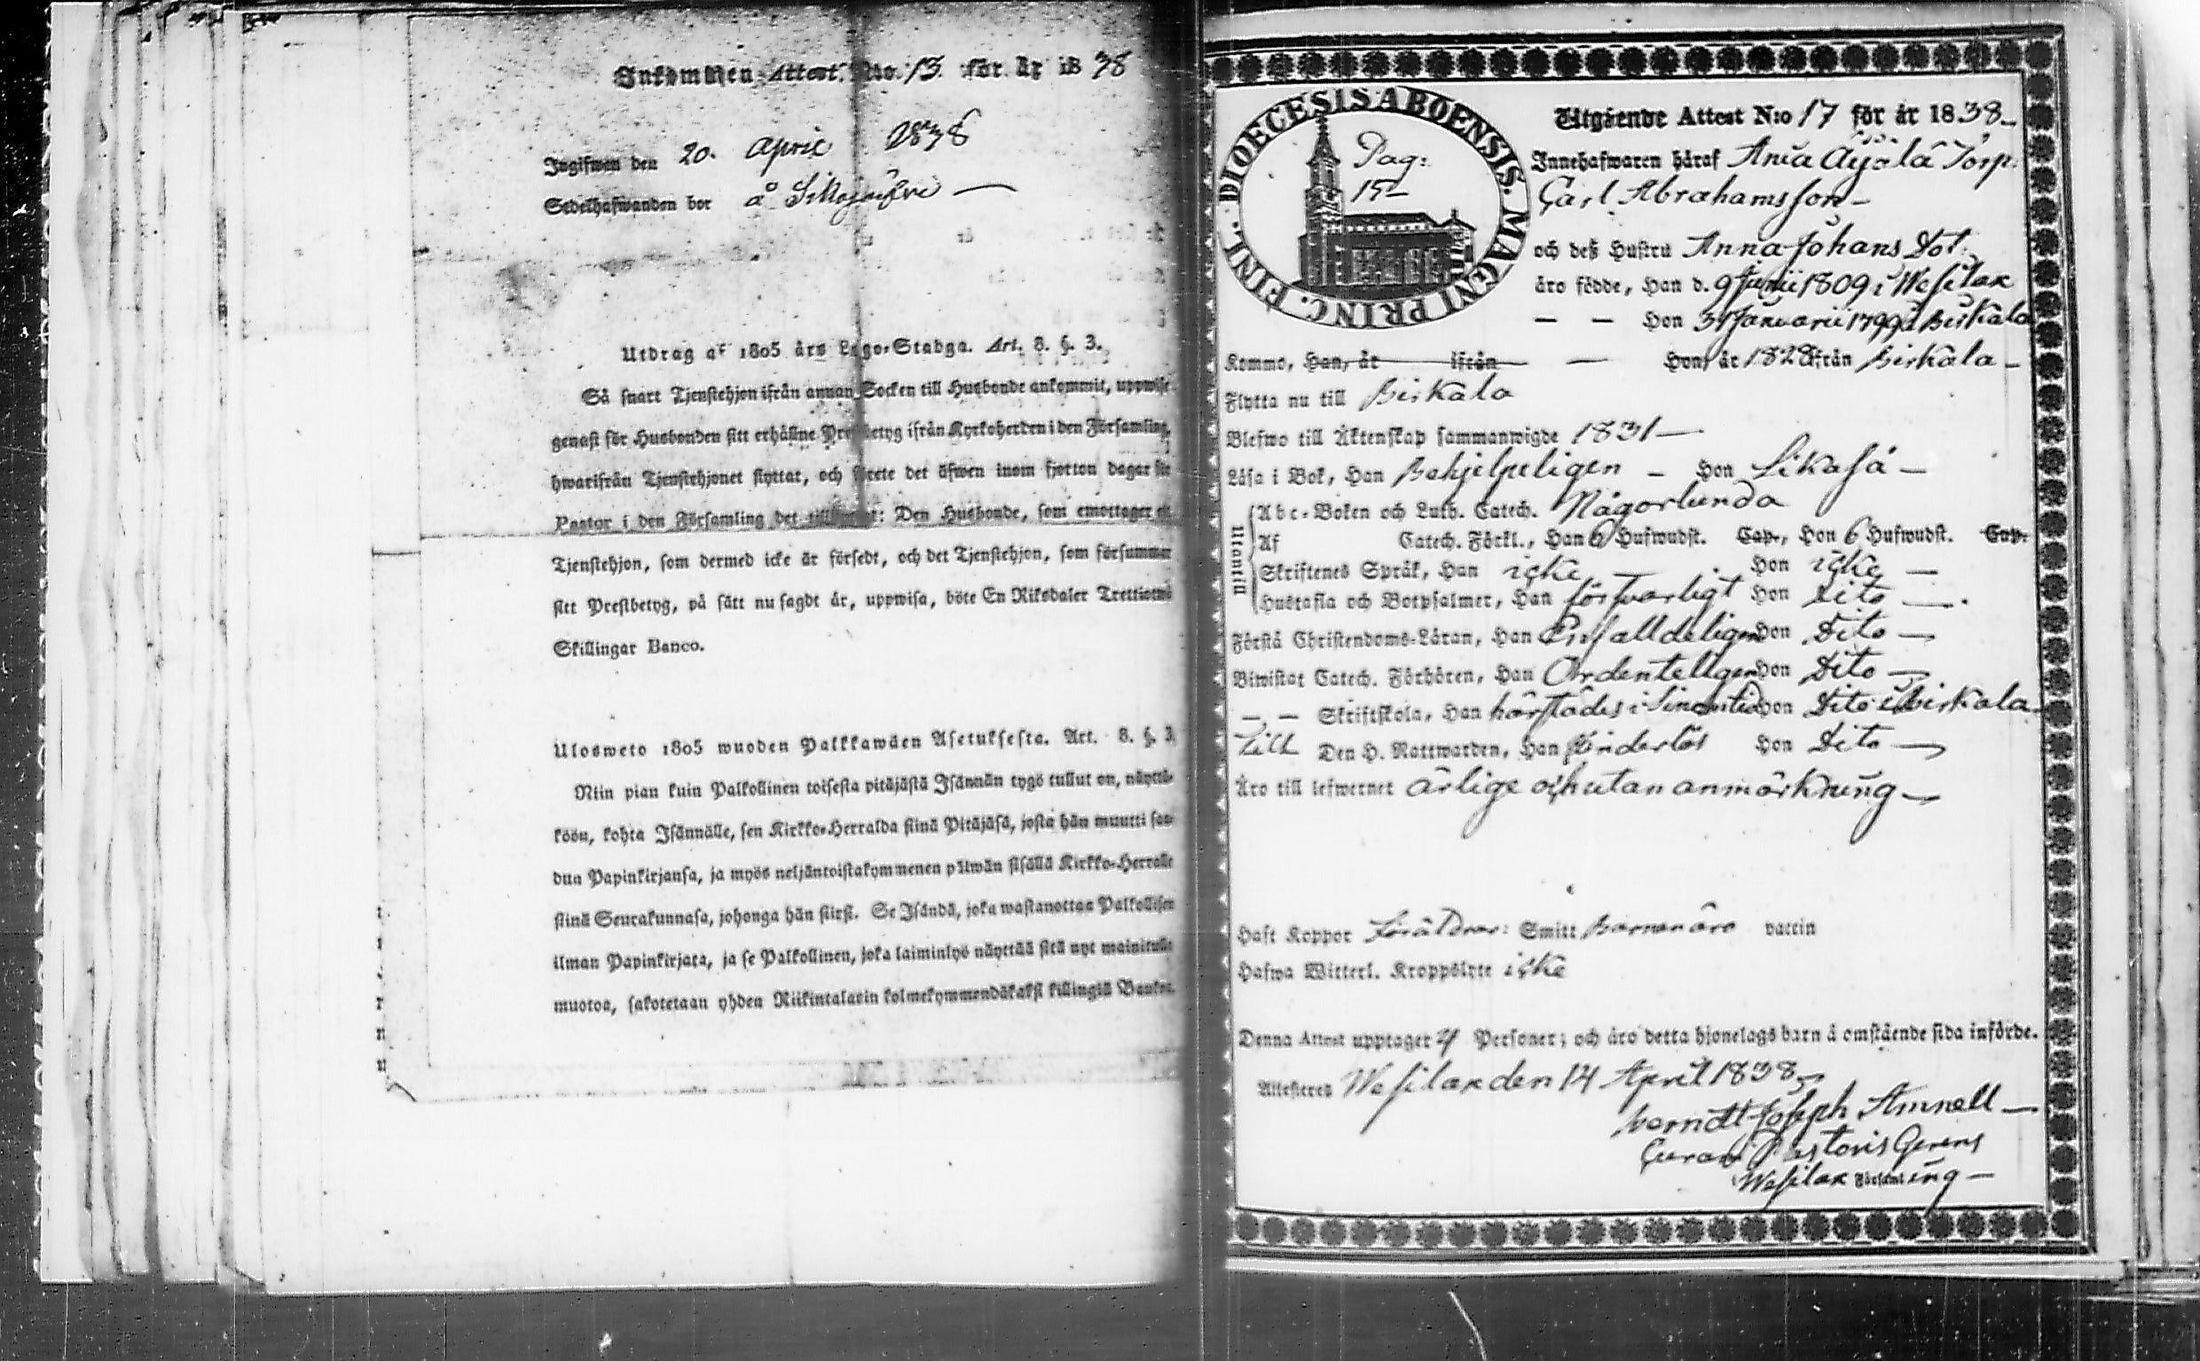 Inkommen Attest No. 13. för år 1838
Ingifwen den 20. April 1838
Sedelhafwanden bor å
Utdrag af 1805 års Lego-Stadga. Art. 8. §. 3.
Så snart Tjenstehjon ifrån annan Socken till Husbonde ankommit, uppwise
genast för Husbonden sitt erhållne Prestbetyg ifrån Kyrkoherden i den Församling,
hwarifrån Tjenstehjonet flyttat, och förete det äfwen inom fjorton dagar för
Pastor i den Församling det tillflyttat: Den Husbonde, som emottager ett
Tjenstehjon, som dermed icke är försedt, och det Tjenstehjon, som försummar
sitt Prestbetyg, på sätt nu sagdt är, uppwisa, böte En Riksdaler Trettiotwå
Skillingar Banco.
Ulosweto 1805 wuoden Palkkawäen Asetuksesta. Art. 8. §. 3.
Niin pian kuin Palkollinen toisesta pitäjästä Isännän tygö tullut on, näyttä-
köön, kohta Isännälle, sen Kirkko-Herralda siinä Pitäjäsä, josta hän muutti saa-
dun Papinkirjansa, ja myös neljäntoistakymmenen päiwän sisällä Kirkko-Herralle
siinä Seurakunnasa, johonga hän siirsi. Se Isändä, joka wastanottaa Palkollisen
ilman Papinkirjata, ja se Palkollinen, joka laiminlyö näyttää sitä nyt mainitulla
muotoa, sakotetaan yhden Riikintalarin kolmekymmendäkaksi killingiä Banko.
DIOECESIS ABOENSIS. MAGNI PRINC. FINL.
Pag:
15
Utgående Attest N:o 17 för år 1838
Innehafwaren häraf Ania Torp.
Carl Abrahamsson
och deß Hustru Anna Johans Dot.
äro födde, Han d. 9 Junii 1809 i Wesilax
— — Hon 31 Januarii 1799 i Birkala
Kommo, Han, år ifrån — Hon, år 1828 ifrån Birkala
Flytta nu till Birkala
Blefwo till Äktenskap sammanwigde 1831
Läsa i Bok, Han Behjelpeligen — Hon Likaså
Utantill
Abc-Boken och Luth. Catech. Någorlunda
Af Catech. Förkl., Han 6 Hufwudst. Cap., Hon 6 Hufwudst. Cap.
Skriftenes Språk, Han icke Hon icke
Hustafla och Botpsalmer, Han försvarligt Hon Dito
Förstå Christendoms-Läran, Han Enfalldeligen Hon Dito
Biwistat Catech. Förhören, Han Ordenteligen Hon Dito
— — Skriftskola, Han härstädes i Hon Dito i Birkala
Till Den H. Nattwarden, Han hinderlös Hon Dito
Äro till lefwernet ärlige och utan anmärkning
Haft Koppor Föräldrar: Smitt Barnen äro vaccin
Hafwa Witterl. Kroppslyte icke
Denna Attest upptager 4 Personer; och äro detta hjonelags barn å omstående sida införde.
Attesteres Wesilax den 14 April 1838
Berndt Joseph Amnell
Curam Pastoris Gerens
Wesilax Församling